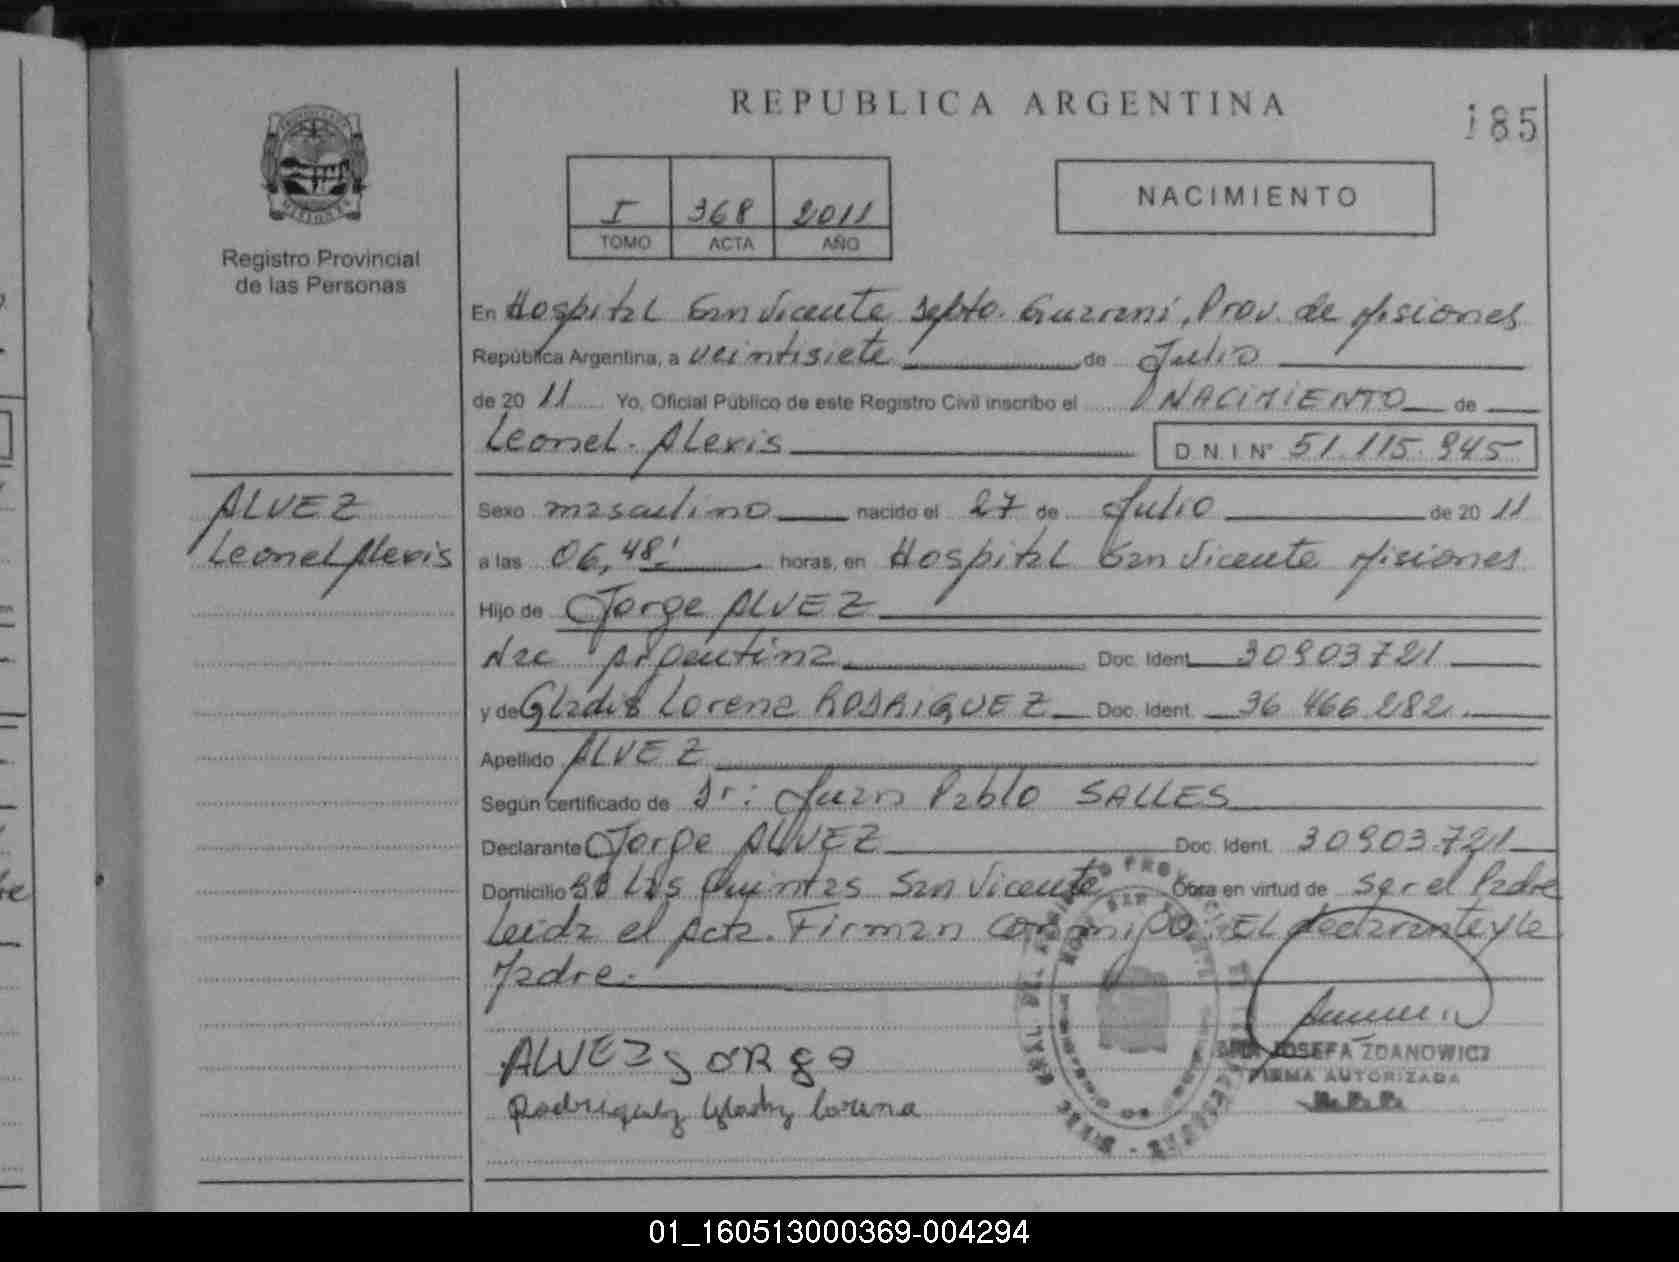 REPUBLICA ARGENTINA
185
I 368 2011
TOMO ACTA AÑO
NACIMIENTO
MISIONES
Registro Provincial
de las Personas
En Hospital San Vicente Depto. Guarani, Prov. de Misiones
República Argentina, a veintisiete de Julio
de 2011 Yo, Oficial Público de este Registro Civil inscribo el NACIMIENTO de
Leonel Alexis D.N.I. Nº 51.115.945
ALVEZ
Leonel Alexis
Sexo masculino nacido el 27 de Julio de 2011
a las 06,48' horas, en Hospital San Vicente Misiones
Hijo de Jorge ALVEZ
Nac Argentina Doc. Ident. 30903721
y de Gladis Lorena RODRIGUEZ Doc. Ident. 36 466.282
Apellido ALVEZ
Según certificado de Dr: Juan Pablo SALLES
Declarante Jorge ALVEZ Doc. Ident. 30903.721
Domicilio Bº Las Quintas San Vicente Obra en virtud de ser el Padre
Leida el Acta. Firman conmigo. El declarante y la
Madre.
ALVEZ JORGE
Rodriguez Lorena
JOSEFA ZDANOWICZ
FIRMA AUTORIZADA
01_160513000369-004294